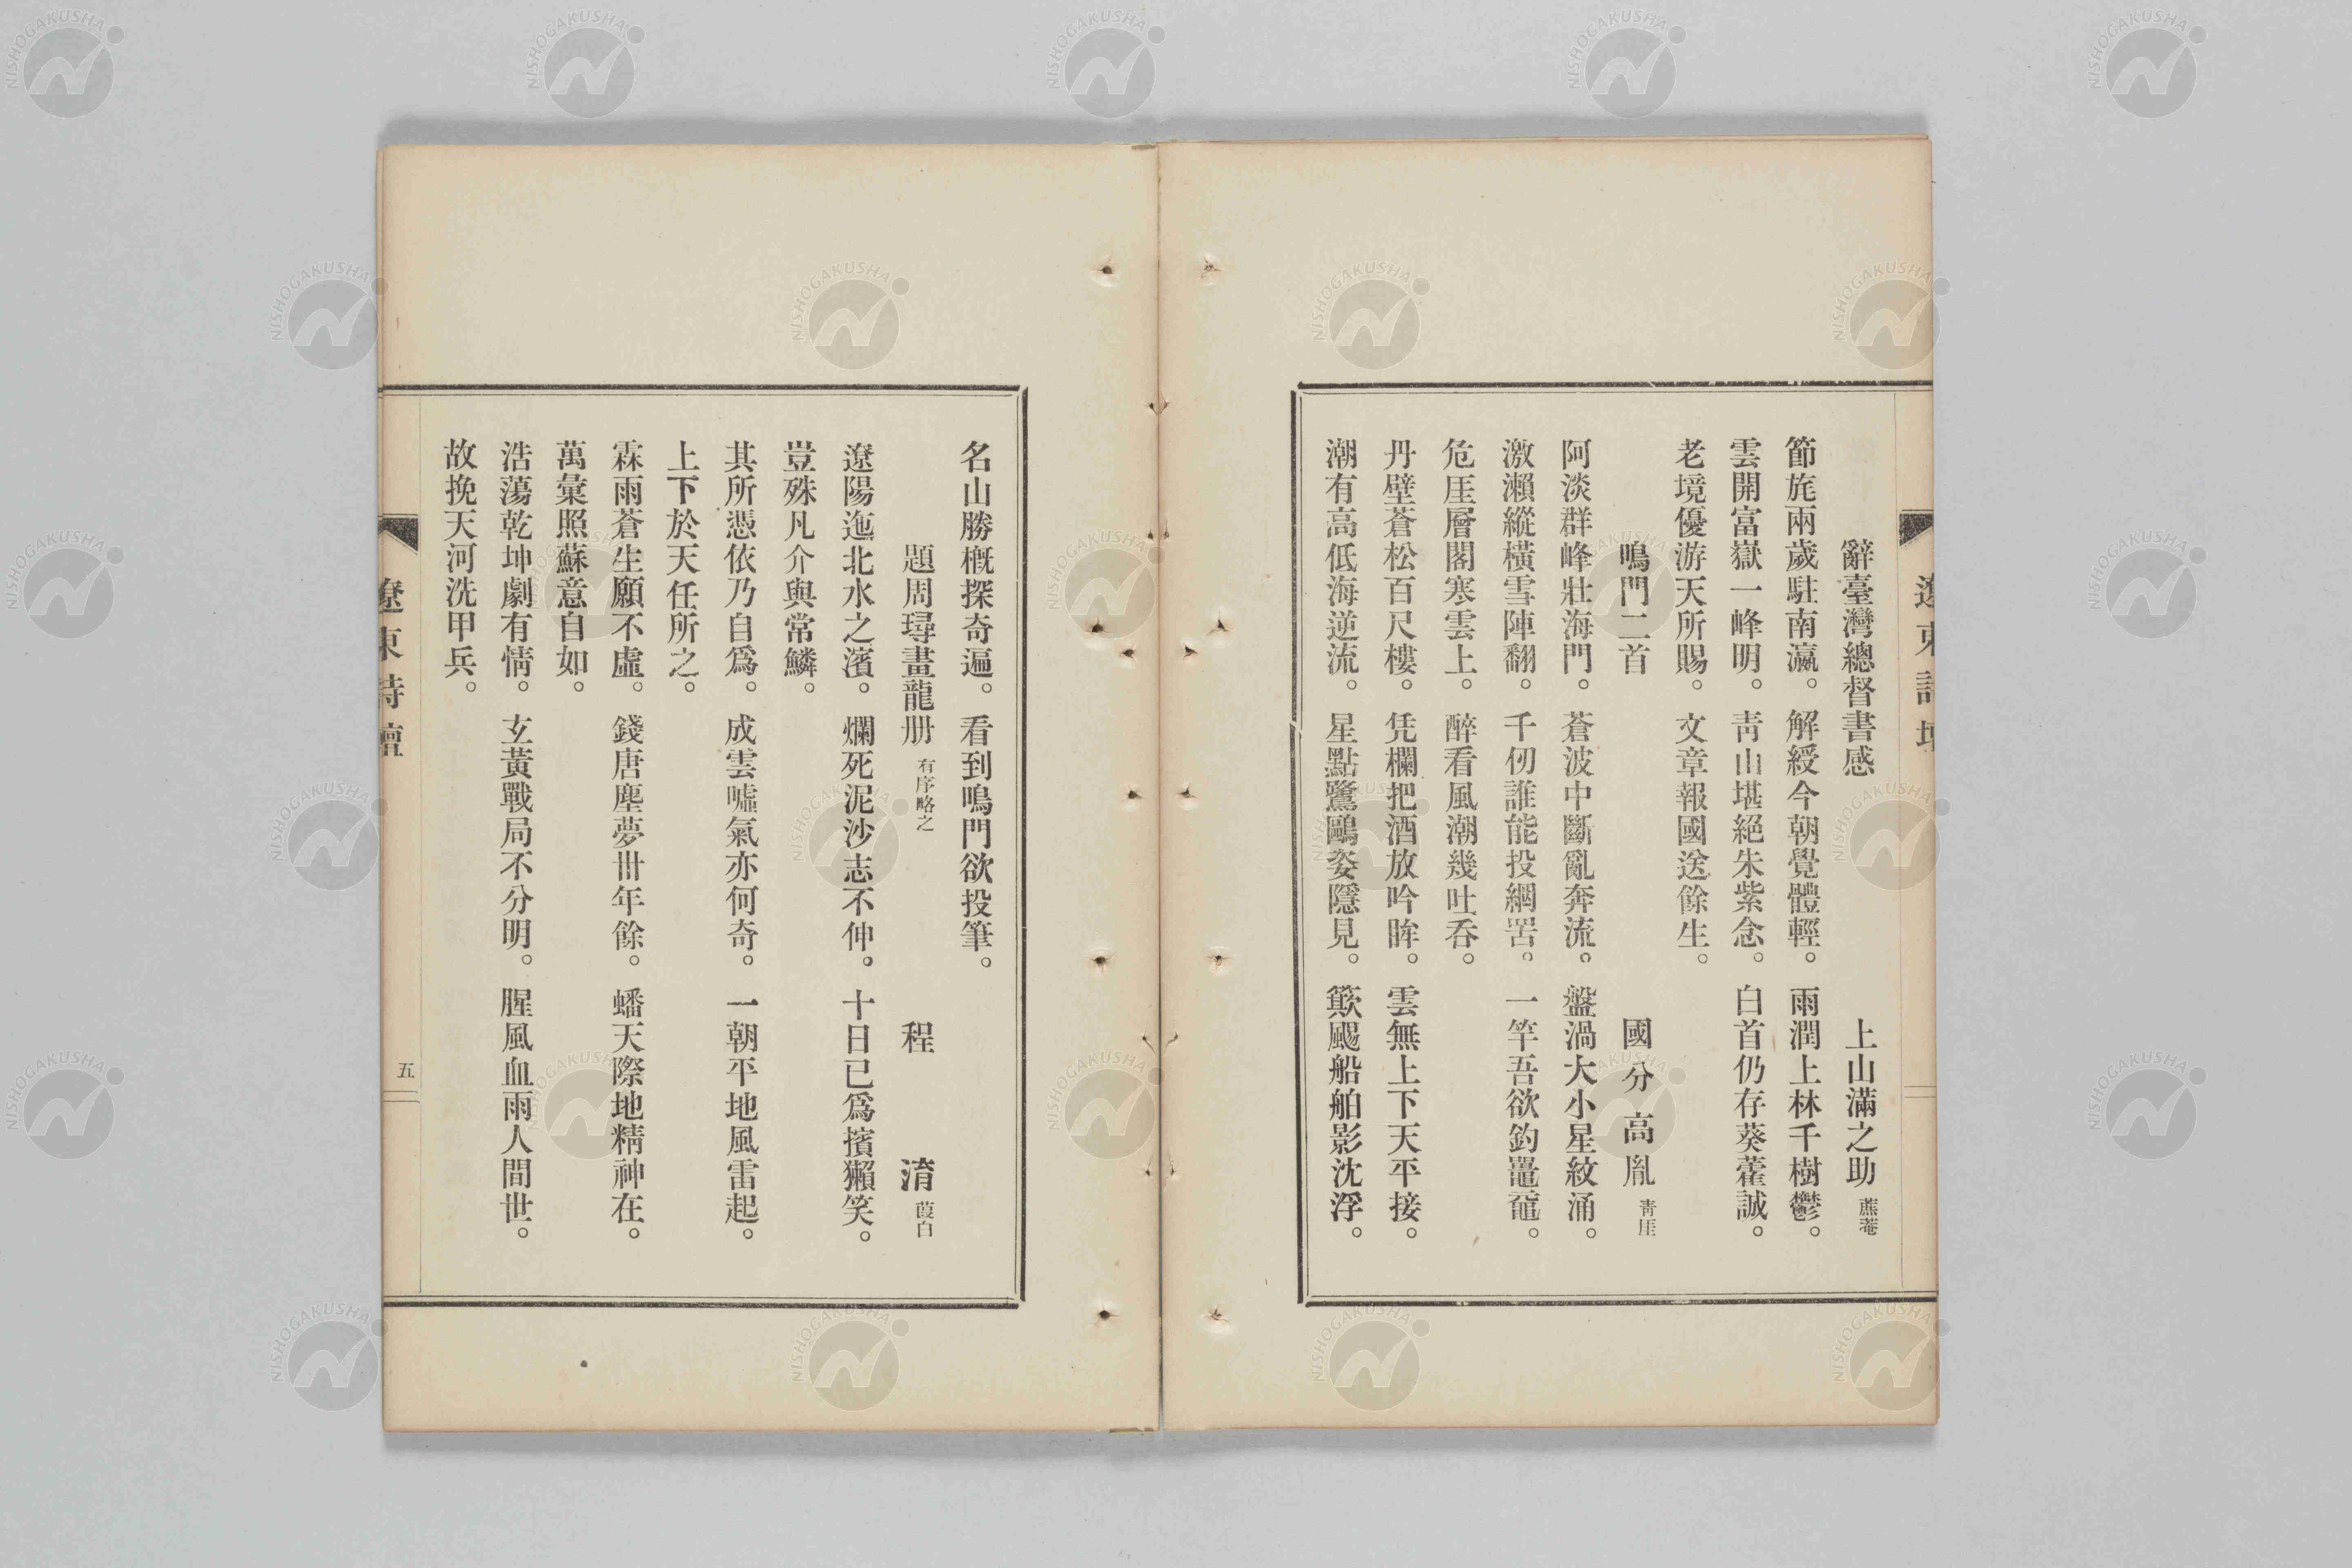 遼東詩壇
辭臺灣總督書感　上山滿之助 蔗菴
節旄兩歲駐南瀛。解綬今朝覺體輕。雨潤上林千樹鬱。
雲開富嶽一峰明。靑山堪絕朱紫念。白首仍存葵藿誠。
老境優游天所賜。文章報國送餘生。
鳴門二首　國分高胤 靑厓
阿淡群峰壯海門。蒼波中斷亂奔流。盤渦大小星紋涌。
激瀨縱橫雪陣翻。千仞誰能投網罟。一竿吾欲釣鼉黿。
危厓層閣寒雲上。醉看風潮幾吐呑。
丹壁蒼松百尺樓。凭欄把酒放吟眸。雲無上下天平接。
潮有高低海逆流。星點鷺鷗姿隱見。簸颺船舶影沈浮。
名山勝槪探奇遍。看到鳴門欲投筆。
題周璕畫龍册 有序略之　程淯 葭白
遼陽迤北水之濱。爛死泥沙志不伸。十日已爲擯獺笑。
豈殊凡介與常鱗。
其所憑依乃自爲。成雲噓氣亦何奇。一朝平地風雷起。
上下於天任所之。
霖雨蒼生願不虛。錢唐塵夢卌年餘。蟠天際地精神在。
萬彙照蘇意自如。
浩蕩乾坤劇有情。玄黃戰局不分明。腥風血雨人間世。
故挽天河洗甲兵。
遼東詩壇
五
NISHOGAKUSHA